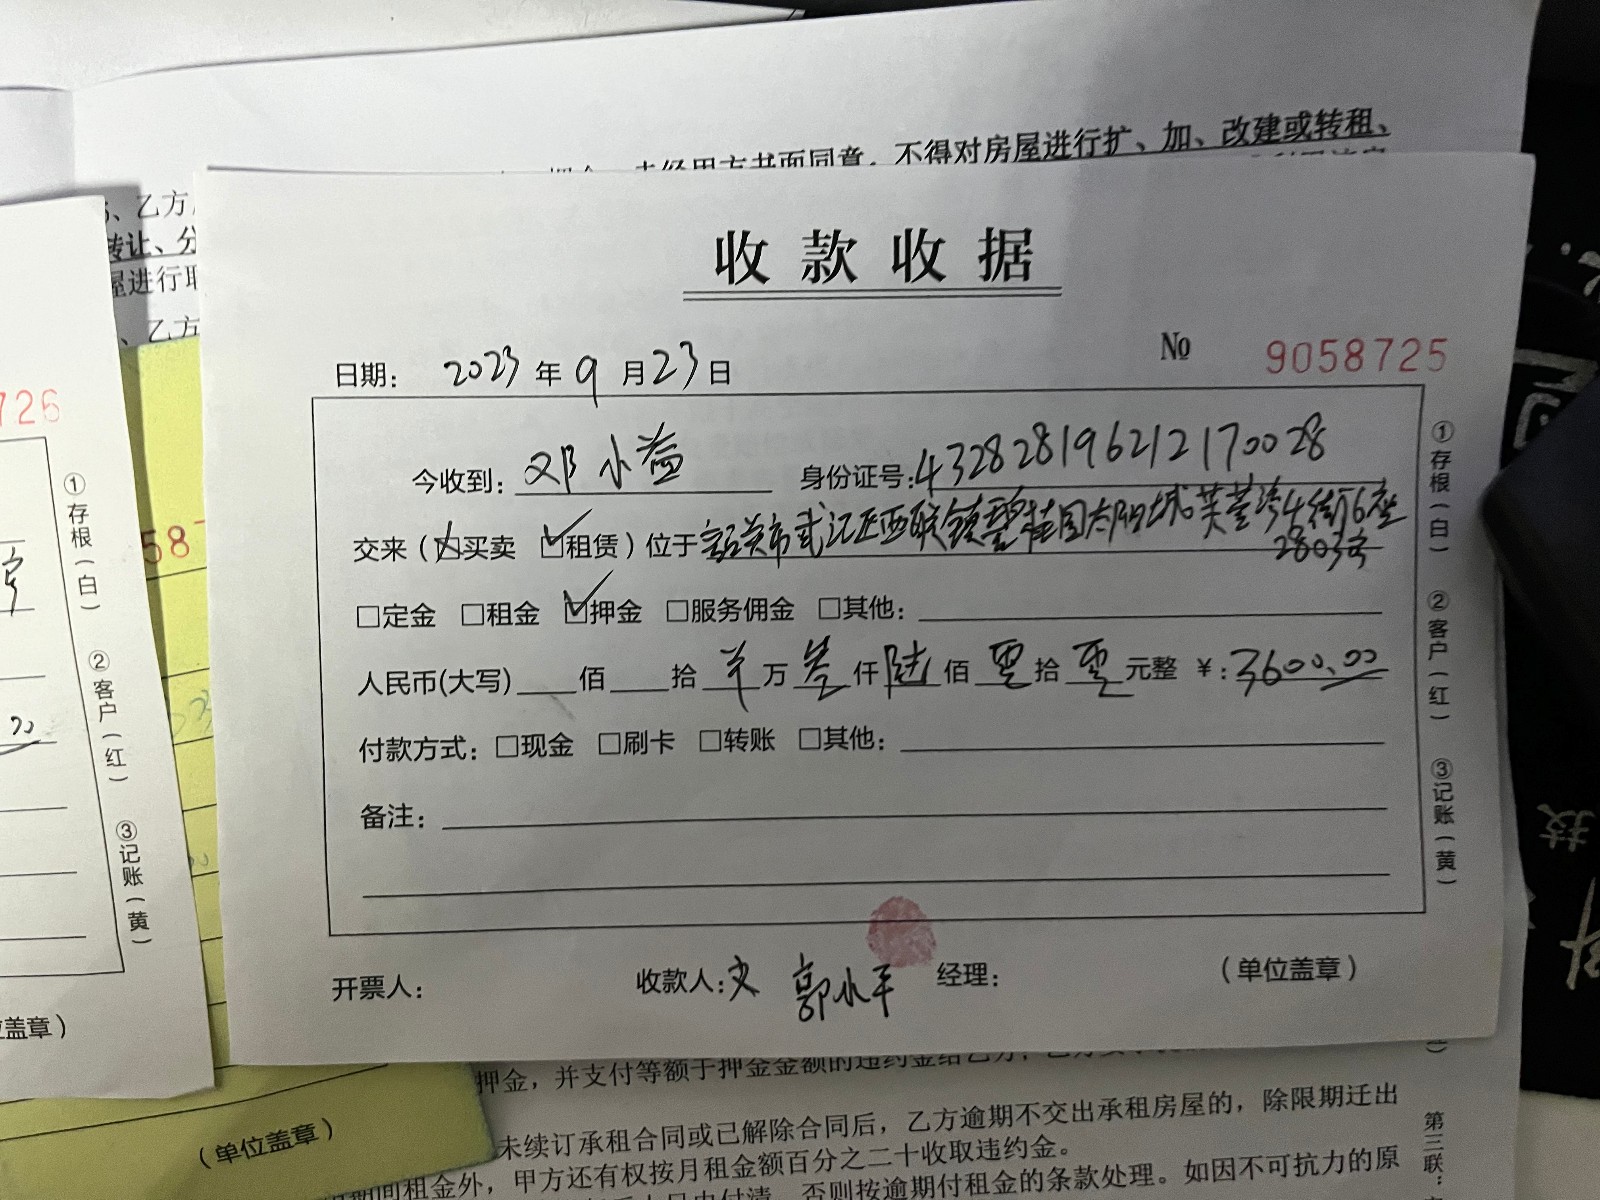 押金、未经甲方书面同意，不得对房屋进行扩、加、改建或转租、
、乙方
转让、分
屋进行
、乙方
收款收据
日期： 2023 年 9 月 23 日
No 9058725
今收到： 邓小益 身份证号: 432828196212170028
交来（ 买卖 ☑租赁）位于 韶关市武江区西联镇碧桂园太阳城芙蓉湾4街6座
2803号
□定金 □租金 ☑押金 □服务佣金 □其他：
人民币(大写) 佰 拾 羊 万 叁 仟 陆 佰 零 拾 零 元整 ￥: 3600.00
付款方式：□现金 □刷卡 □转账 □其他：
备注：
开票人： 收款人: 郭小平 经理： （单位盖章）
①存根（白）
②客户（红）
③记账（黄）
726
①存根（白）
②客户（红）
③记账（黄）
盖章）
58
（单位盖章）
押金，并支付等额于押金金额的违约金给乙方，
未续订承租合同或已解除合同后，乙方逾期不交出承租房屋的，除限期迁出
期间租金外，甲方还有权按月租金额百分之二十收取违约金。
否则按逾期付租金的条款处理。如因不可抗力的原
第三联：
技